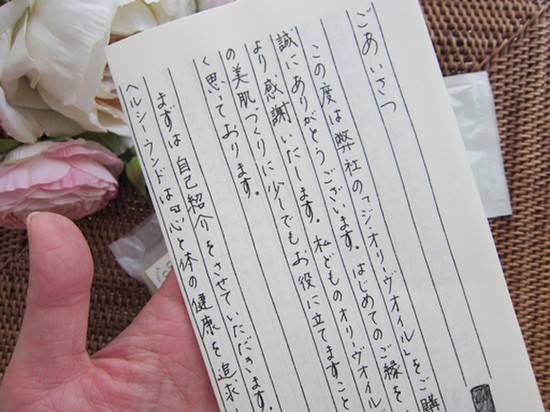 ごあいさつ
この度は弊社の「ジ・オリーヴオイル」をご購
誠にありがとうございます。はじめてのご縁を
より感謝いたします。私どものオリーヴオイルが
の美肌づくりに少しでもお役に立てますこと
く思っております。
まずは自己紹介をさせていただきます。
ヘルシーランドは「心と体の健康を追求